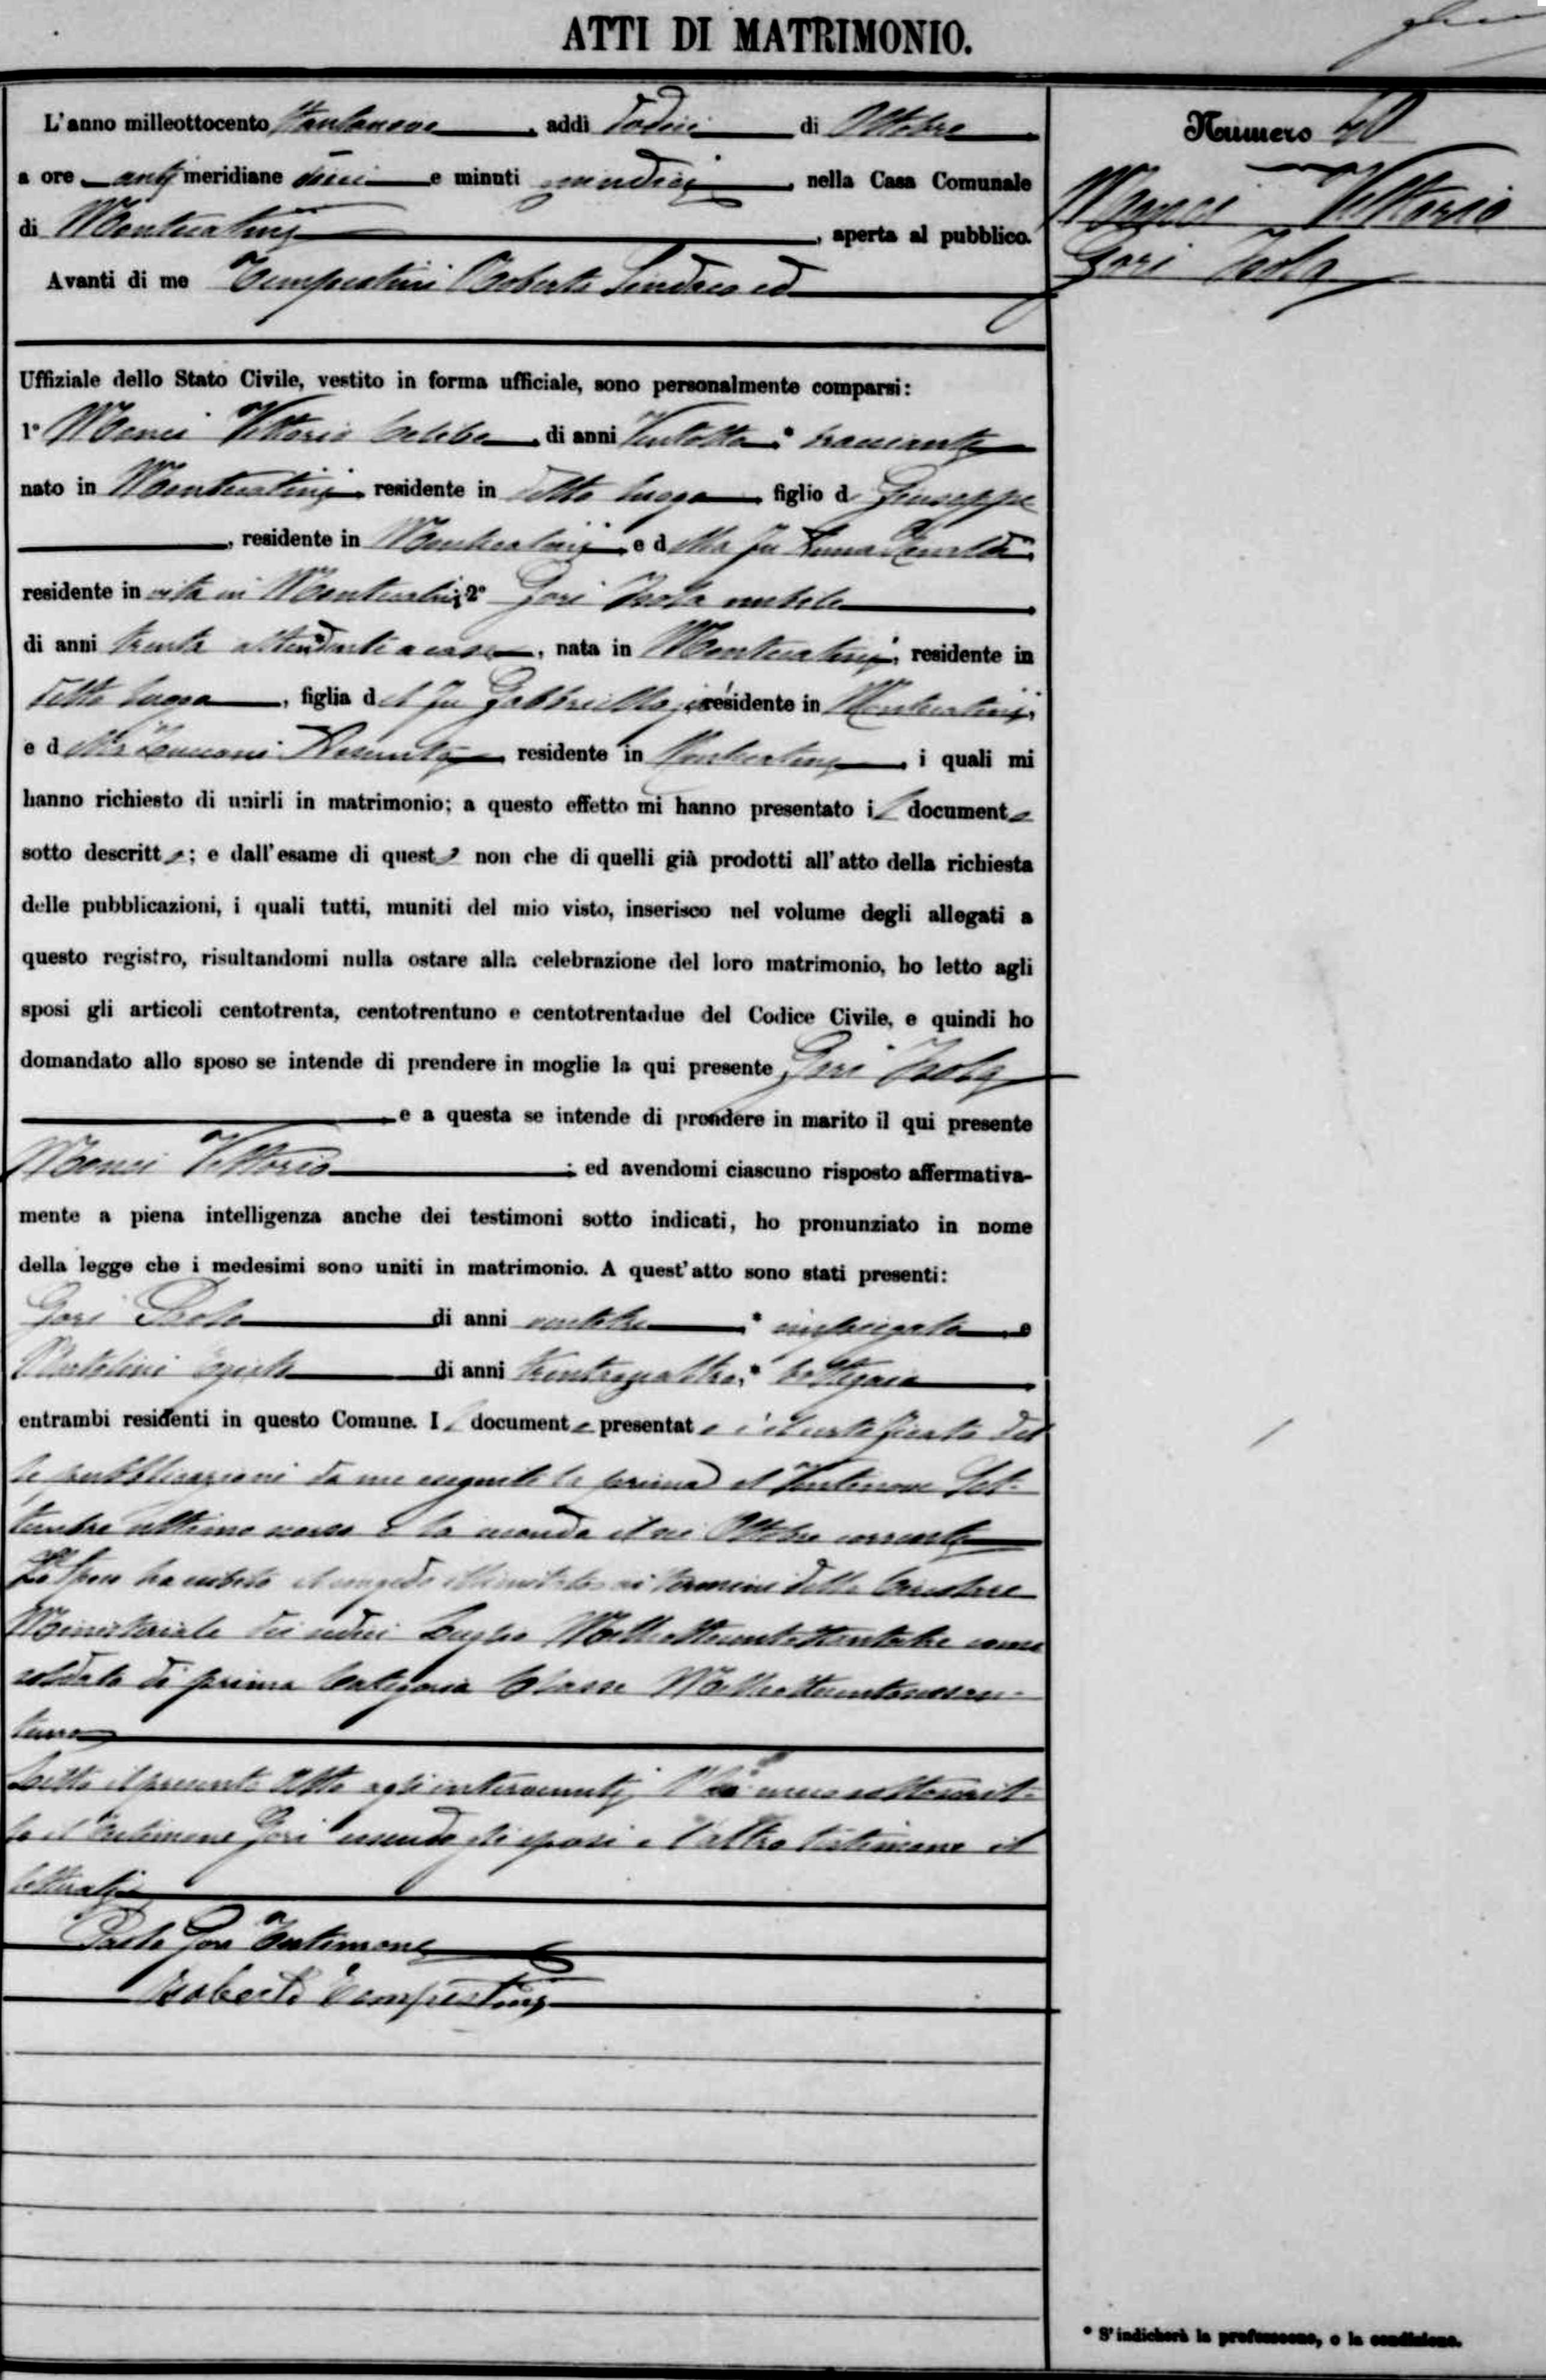 ATTI DI MATRIMONIO.
L'anno milleottocento ottantanove, addì dodici di Ottobre
a ore anti meridiane dieci e minuti quindici, nella Casa Comunale
di Montecatini, aperta al pubblico.
Avanti di me Tempestini Roberto Sindaco ed
Numero 40
Monci Vittorio
Gori Isola
Uffiziale dello Stato Civile, vestito in forma ufficiale, sono personalmente comparsi:
1° Monci Vittorio celibe, di anni ventotto * bracciante
nato in Montecatini residente in detto luogo figlio di Giuseppe
, residente in Montecatini e della fu Anna
residente in vita in Montecatini; 2° Gori Isola nubile
di anni trenta attendente a casa, nata in Montecatini, residente in
detto luogo, figlia del fu Gabbriello, residente in Montecatini,
e della Assunta residente in Montecatini, i quali mi
hanno richiesto di unirli in matrimonio; a questo effetto mi hanno presentato il documento
sotto descritto; e dall'esame di questo non che di quelli già prodotti all'atto della richiesta
delle pubblicazioni, i quali tutti, muniti del mio visto, inserisco nel volume degli allegati a
questo registro, risultandomi nulla ostare alla celebrazione del loro matrimonio, ho letto agli
sposi gli articoli centotrenta, centotrentuno e centotrentadue del Codice Civile, e quindi ho
domandato allo sposo se intende di prendere in moglie la qui presente Gori Isola
e a questa se intende di prendere in marito il qui presente
Monci Vittorio; ed avendomi ciascuno risposto affermativa-
mente a piena intelligenza anche dei testimoni sotto indicati, ho pronunziato in nome
della legge che i medesimi sono uniti in matrimonio. A quest'atto sono stati presenti:
Gori Paolo di anni ventitre, * impiegato, e
Egisto di anni trentaquattro, * bottegaio
entrambi residenti in questo Comune. Il documento presentato è il certificato del
le pubblicazioni da me eseguite la prima il ventinove Set-
tembre ultimo scorso e la seconda il sei Ottobre corrente
Lo Sposo ha esibito il congedo illimitato ai termini della Circolare
Ministeriale dei undici Luglio Milleottocentottantatre come
soldato di prima Categoria Classe Milleottocentosessan-
tuno
Letto il presente Atto agli intervenuti, l'ha meco sottoscrit-
to il testimone Gori essendo gli sposi e l'altro testimone il
letterati
Paolo Gori Testimone
Roberto Tempestini
* S'indicherà la professione, o la condizione.